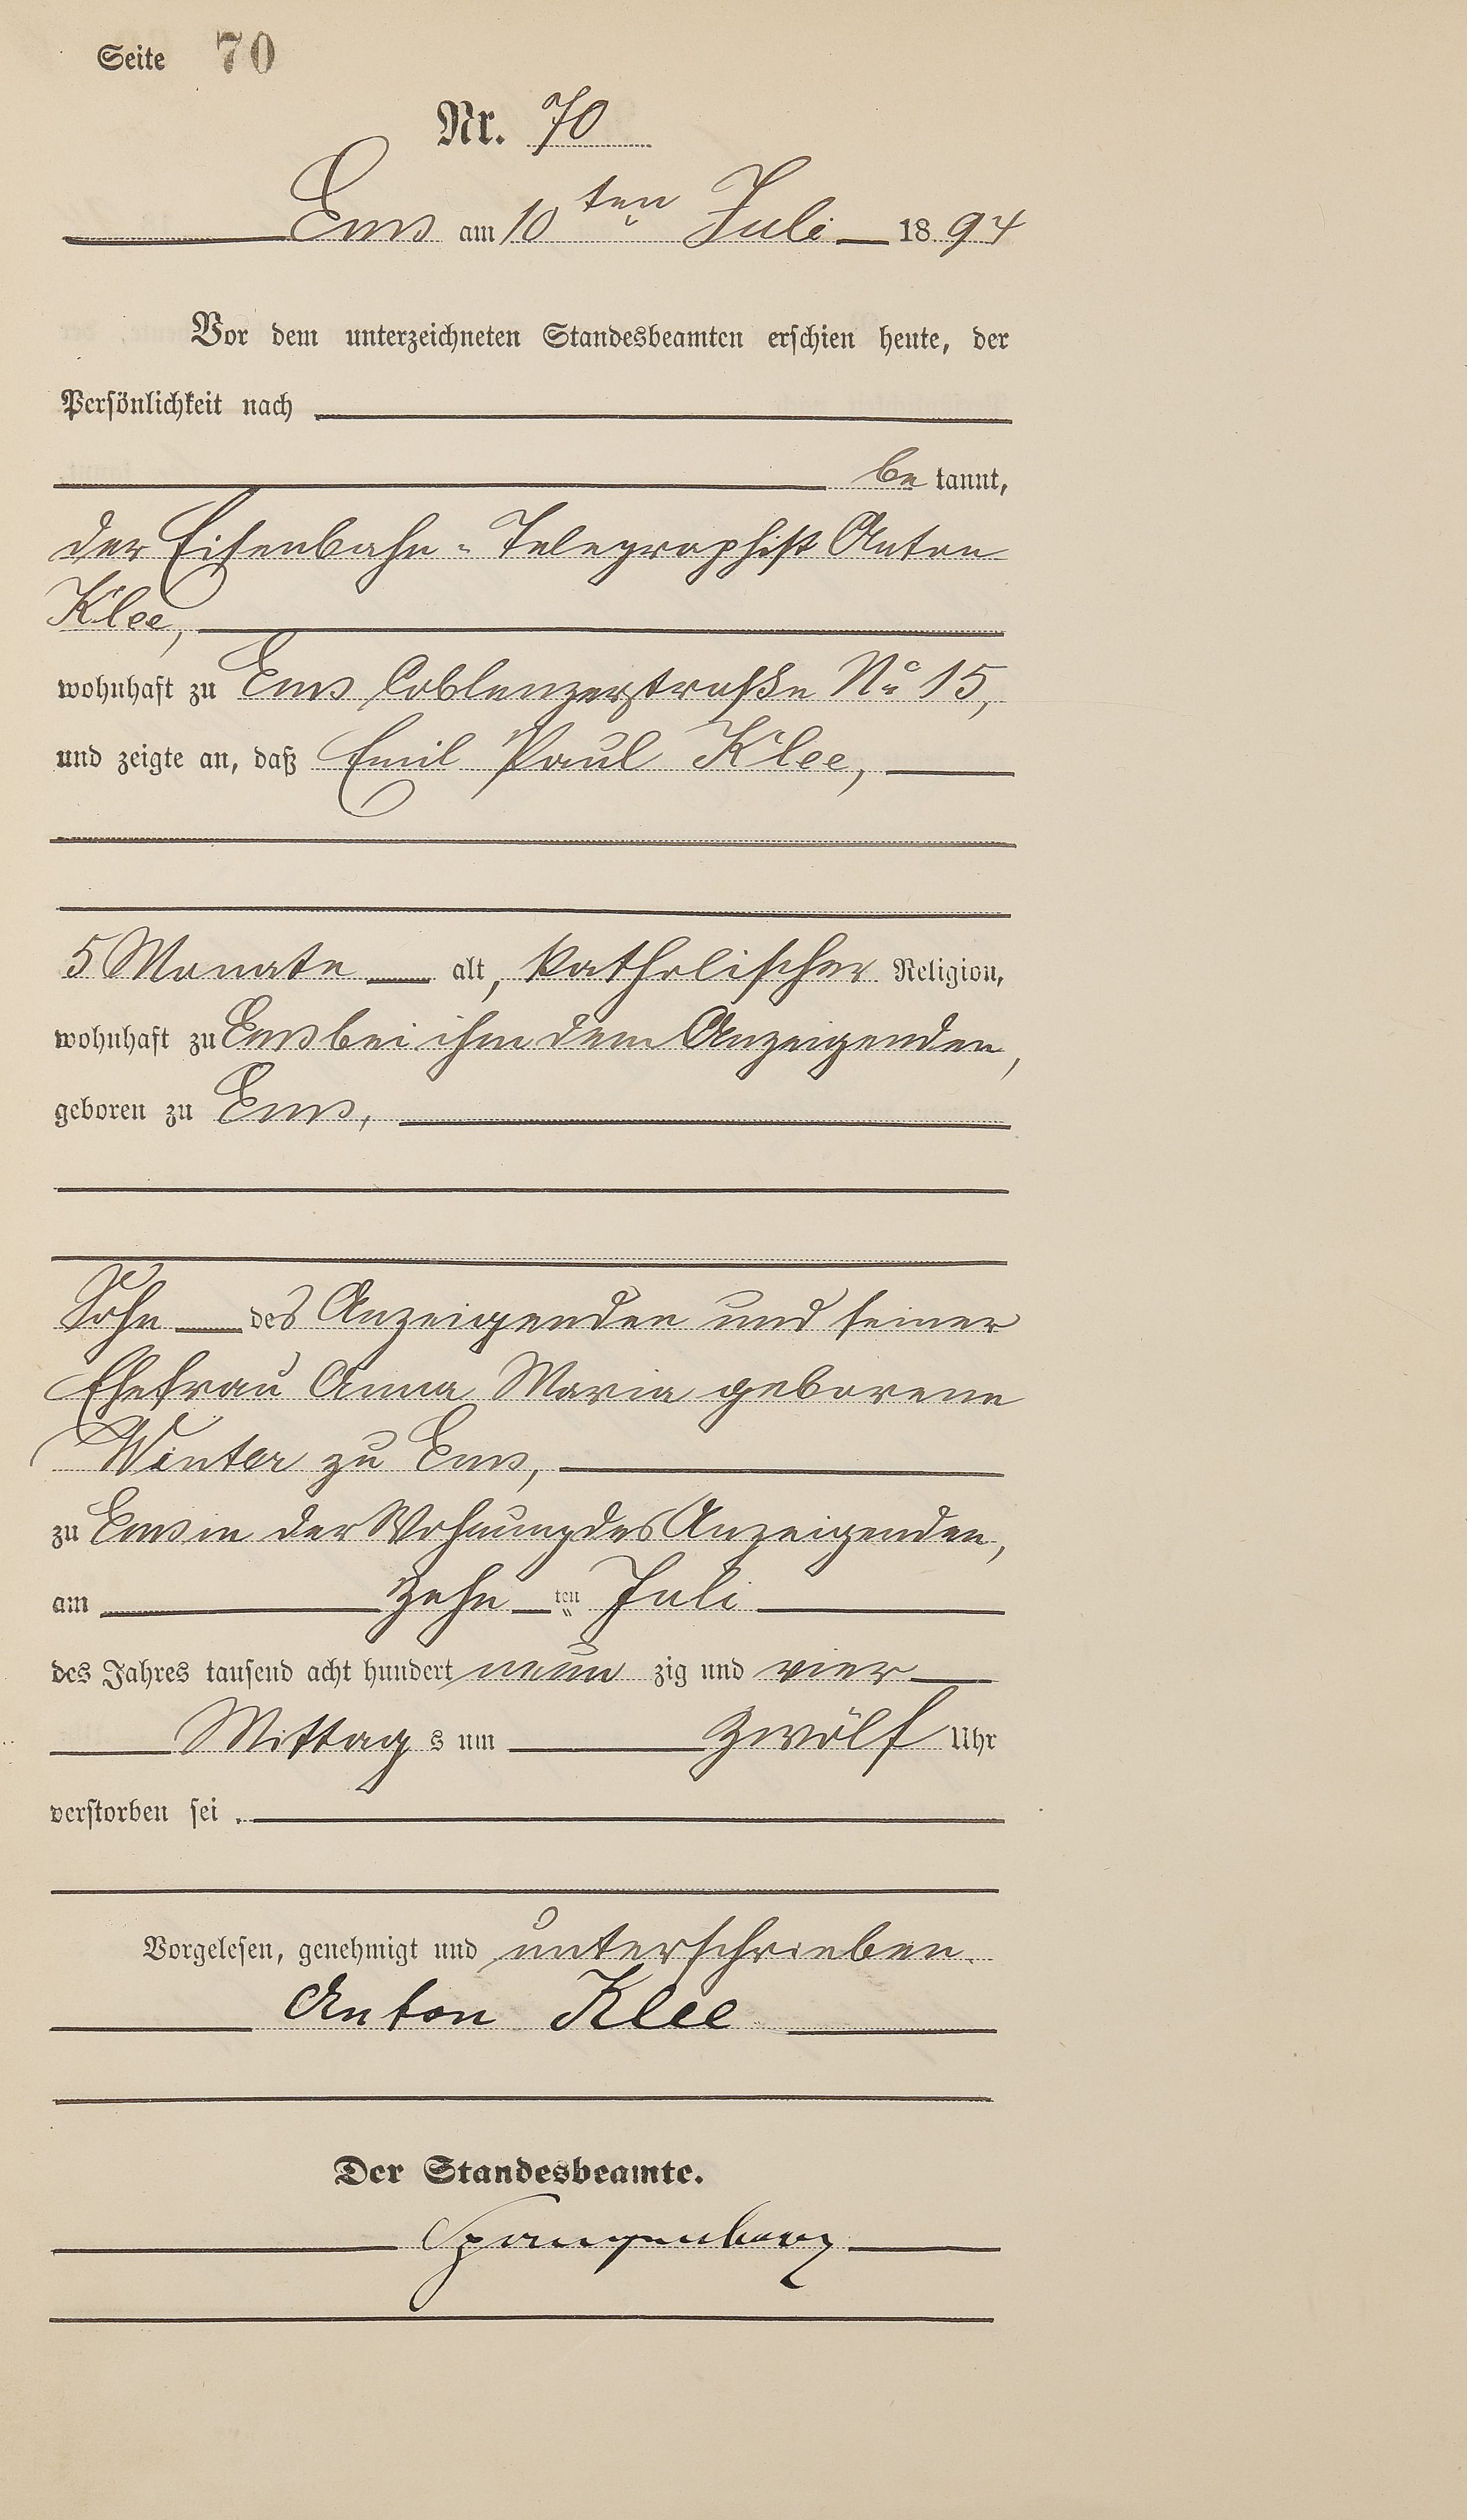 Seite 70
Nr. 70
Ems am 10ten Juli 1894
Vor dem unterzeichneten Standesbeamten erschien heute, der
Persönlichkeit nach
be kannt,
der Eisenbahn-Telegraphist Anton
Klee,
wohnhaft zu Ems Coblenzerstraße No 15,
und zeigte an, daß Emil Paul Klee,
5 Monate alt, katholischer Religion,
wohnhaft zu Ems bei ihm dem Anzeigenden,
geboren zu Ems,
Sohn des Anzeigenden und seiner
Ehefrau Anna Maria geborene
Winter zu Ems,
zu Ems in der Wohnung des Anzeigenden,
am zehn ten Juli
des Jahres tausend acht hundert neun zig und vier
Mittag s um zwölf Uhr
verstorben sei.
Vorgelesen, genehmigt und unterschrieben.
Anton Klee
Der Standesbeamte.
Spangenberg